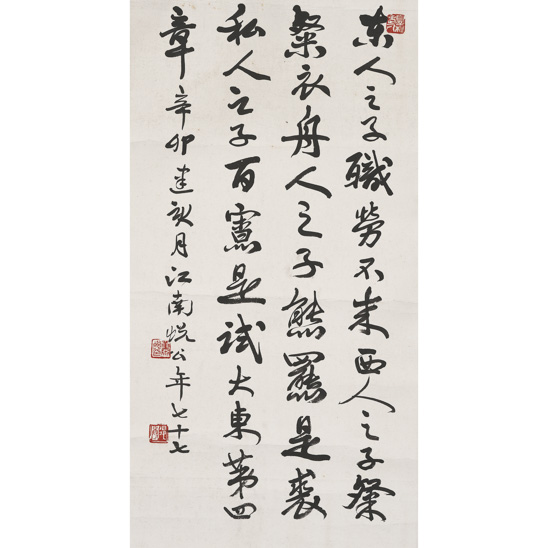 東人之子職勞不来西人之子粲
粲衣舟人之子熊羆是裘
私人之子百寮是試大東第四
章辛卯建亥月江南悅公年七十七